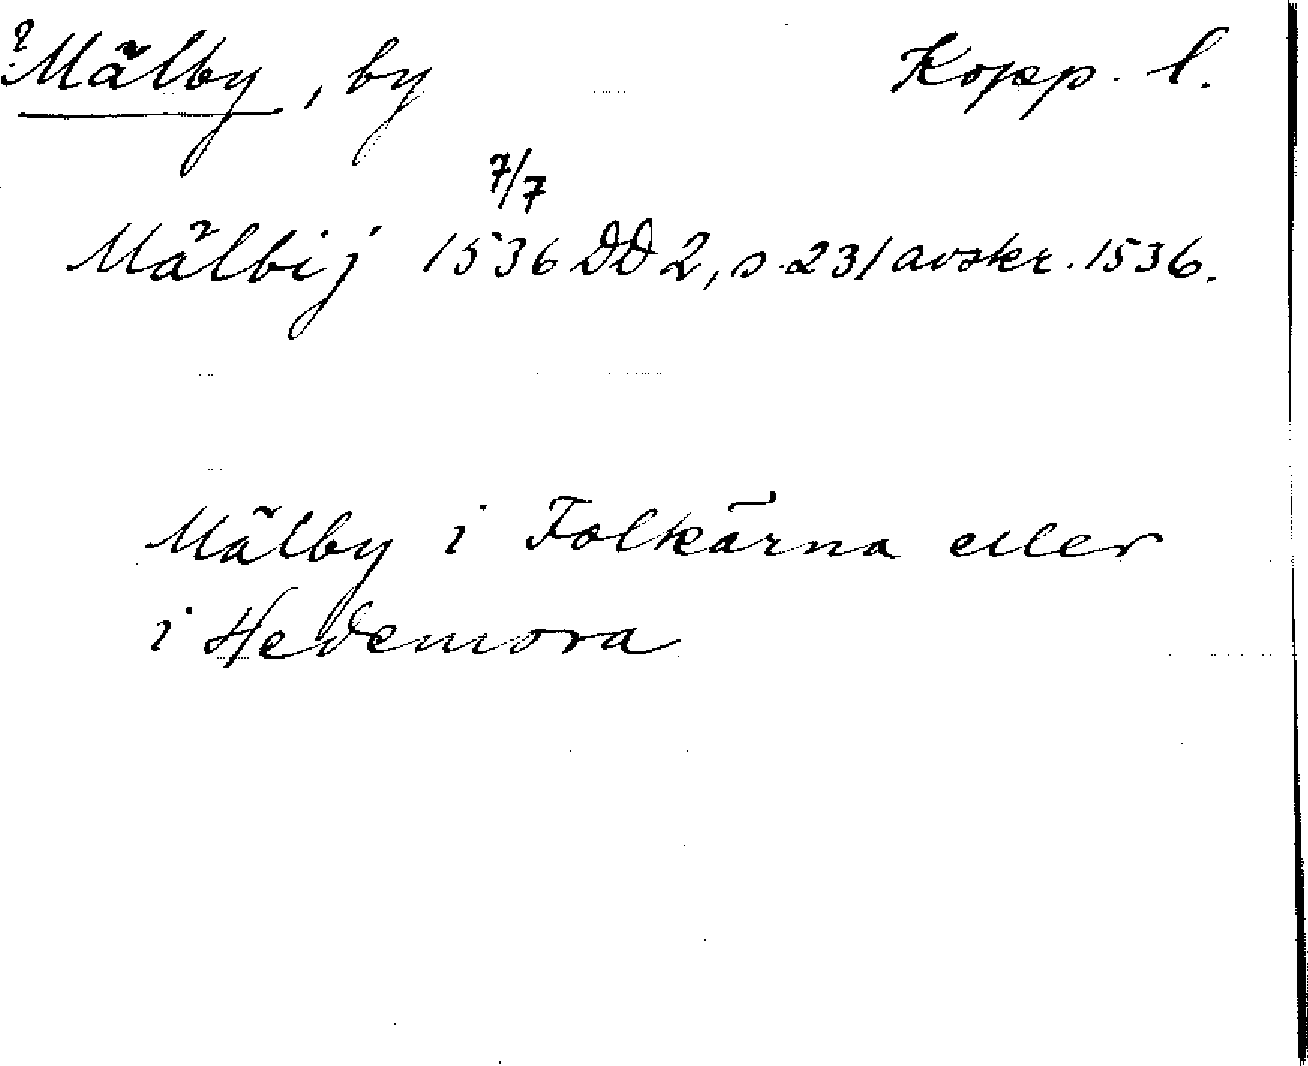 ? Mälby, by Kopp. l.
7/7
Mälbij 1536 DD 2, s. 231 avskr. 1536.
Mälby i Folkärna eller
i Hedemora